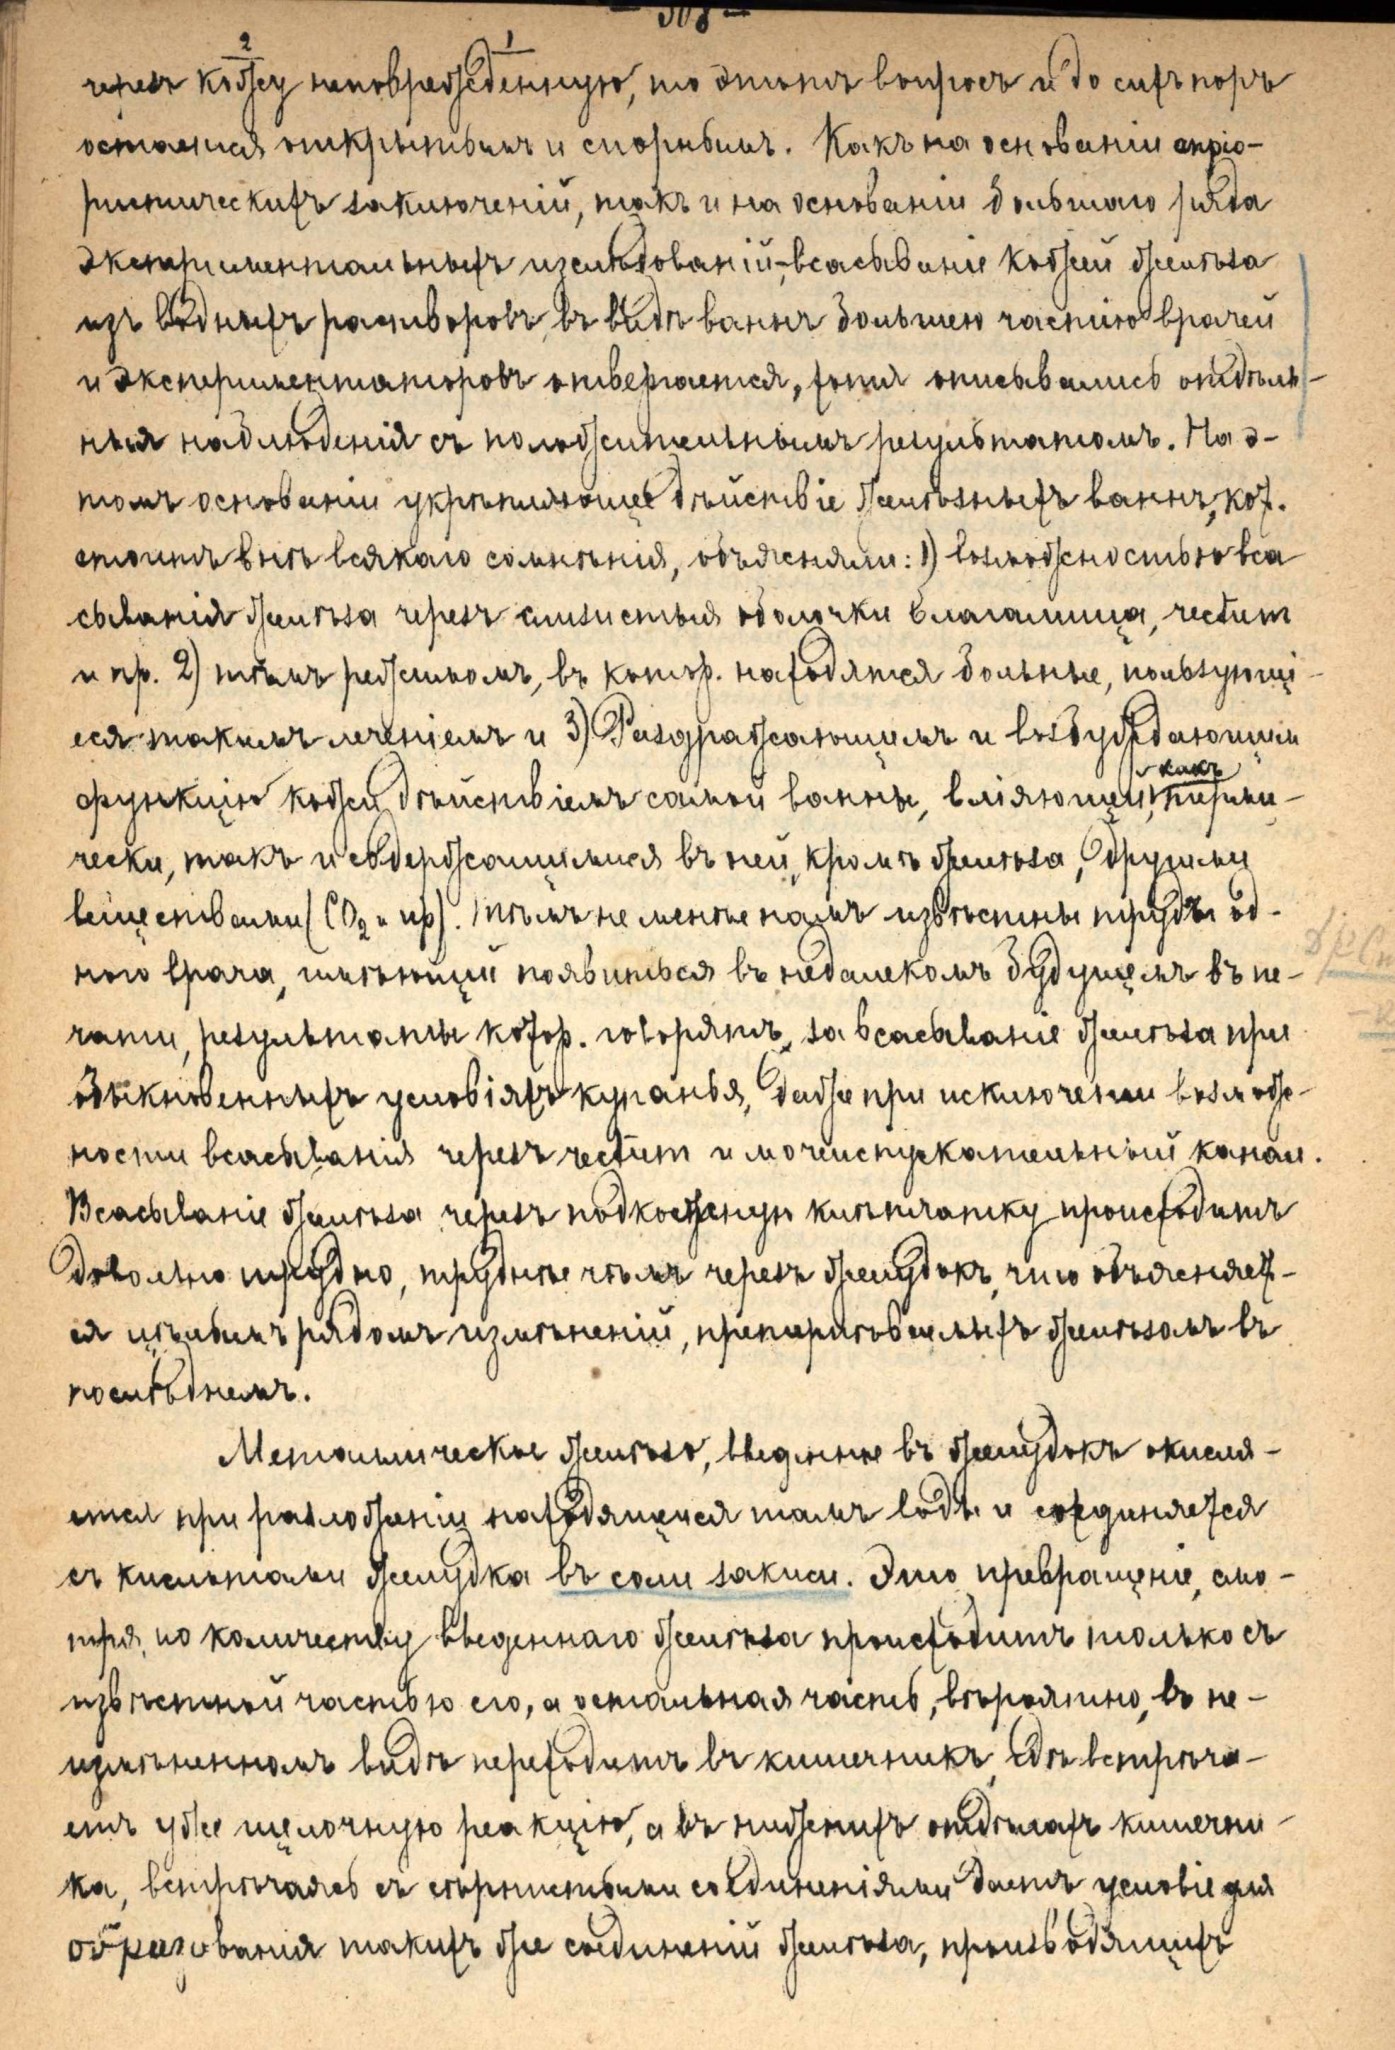 — 308 —
2 1
черезъ кожу неповрежденную, то этотъ вопросъ и до сихъ поръ
остается открытымъ и спорнымъ. Какъ на основаніи апріо-
ритическихъ заключеній, такъ и на основаніи большаго ряда
экспериментальныхъ изслѣдованій, всасываніе кожей желѣза
изъ водныхъ растворовъ въ видѣ ваннъ большею частію врачей
и экспериментаторовъ отвергается, хотя описывались отдѣль-
ныя наблюденія съ положительнымъ результатомъ. На э-
томъ основаніи укрѣпляющее дѣйствіе желѣзныхъ ваннъ, кот.
стоитъ внѣ всякаго сомнѣнія, объясняли: 1) возможностью вса
сыванія желѣза черезъ слизистыя оболочки влагалища, rectum
и пр. 2) тѣмъ режимомъ, въ котор. находятся больные, пользующі-
еся такимъ леченіемъ и 3) Раздражающимъ и возбуждающимъ
функцію кожи дѣйствіемъ самой ванны, вліяющей, какъ терми-
чески, такъ и содержащимися въ ней, кромѣ желѣза, другими
веществами (CO2 и пр). Тѣмъ не менѣе намъ извѣстны труды од-
ного врача, имѣющій появиться въ недалекомъ будущемъ въ пе-
чати, результаты котор. говорятъ за всасываніе желѣза при
обыкновенныхъ условіяхъ купанья, даже при исключеніи возмож-
ности всасыванія черезъ rectum и мочеиспускательный канал.
Всасываніе желѣза черезъ подкожную клѣтчатку происходитъ
довольно трудно, труднѣе чѣмъ черезъ желудокъ, что объясняет-
ся цѣлымъ рядомъ измѣненій, претерпѣваемыхъ желѣзомъ въ
послѣднемъ.
Металлическое желѣзо, введенное въ желудокъ окисля-
ется при разложеніи находящейся тамъ воды и соединяется
съ кислотами желудка въ соли закиси. Это превращеніе, смо-
тря по количеству введеннаго желѣза происходитъ только съ
извѣстной частью его, а остальная часть, вѣроятно, въ не-
измѣненномъ видѣ переходитъ въ кишечникъ, гдѣ встрѣча-
етъ уже щелочную реакцію, а въ нижнихъ отдѣлахъ кишечни-
ка, встрѣчаясь съ сѣрнистыми соединеніями даетъ условіе для
образованія такихъ же соединеній желѣза, производящихъ